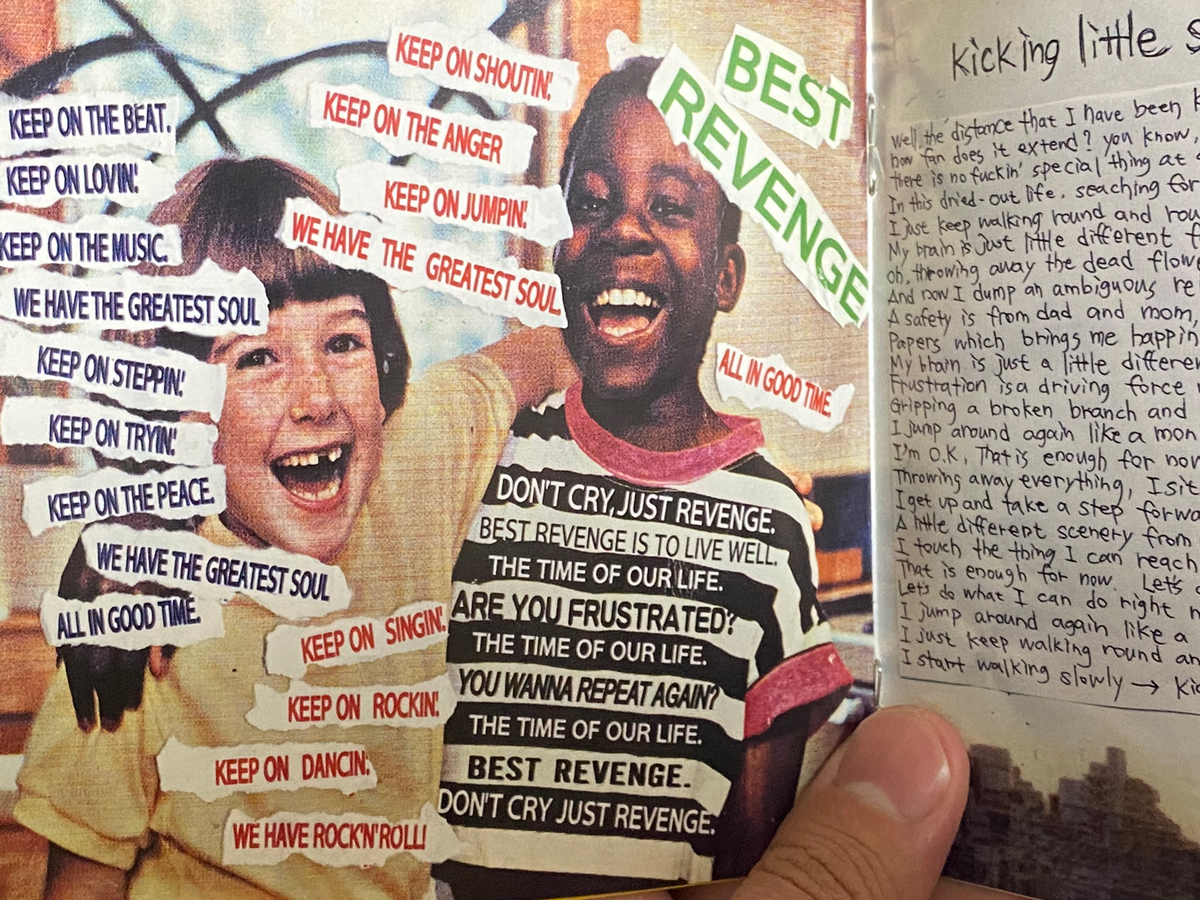 BEST
REVENGE
KEEP ON THE BEAT.
KEEP ON LOVIN'.
KEEP ON THE MUSIC.
WE HAVE THE GREATEST SOUL
KEEP ON STEPPIN'.
KEEP ON TRYIN'.
KEEP ON THE PEACE.
WE HAVE THE GREATEST SOUL
ALL IN GOOD TIME.
KEEP ON SHOUTIN'.
KEEP ON THE ANGER
KEEP ON JUMPIN'.
WE HAVE THE GREATEST SOUL.
ALL IN GOOD TIME.
KEEP ON SINGIN'.
KEEP ON ROCKIN'.
KEEP ON DANCIN'.
WE HAVE ROCK'N'ROLL!
DON'T CRY, JUST REVENGE.
BEST REVENGE IS TO LIVE WELL.
THE TIME OF OUR LIFE.
ARE YOU FRUSTRATED?
THE TIME OF OUR LIFE.
YOU WANNA REPEAT AGAIN?
THE TIME OF OUR LIFE.
BEST REVENGE.
DON'T CRY JUST REVENGE.
kicking little
Well, the distance that I have been
how far does it extend? you know,
there is no fuckin' special thing at
In this dried-out life, seaching for
I just keep walking round and rou
My brain is just little different f
Oh, throwing away the dead flowe
And now I dump an ambiguous re
A safety is from dad and mom,
Papers which brings me happin
My brain is just a little differen
Frustration is a driving force
Gripping a broken branch and
I jump around again like a mon
I'm O.K, That is enough for now
Throwing away everything, I sit
I get up and take a step forwa
A little different scenery from
I touch the thing I can reach
That is enough for now Let's
Let's do what I can do right n
I jump around again like a
I just keep walking round an
I start walking slowly → kic